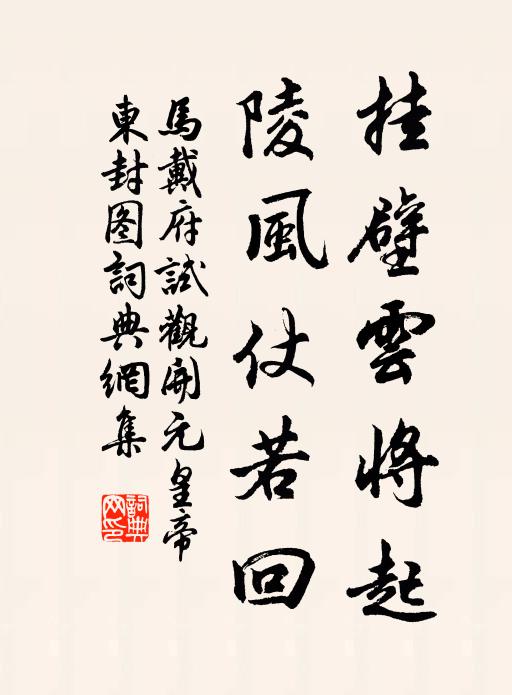 挂壁雲將起
陵風仗若回
馬戴府試觀開元皇帝
東封图詞典網集
詞典网印